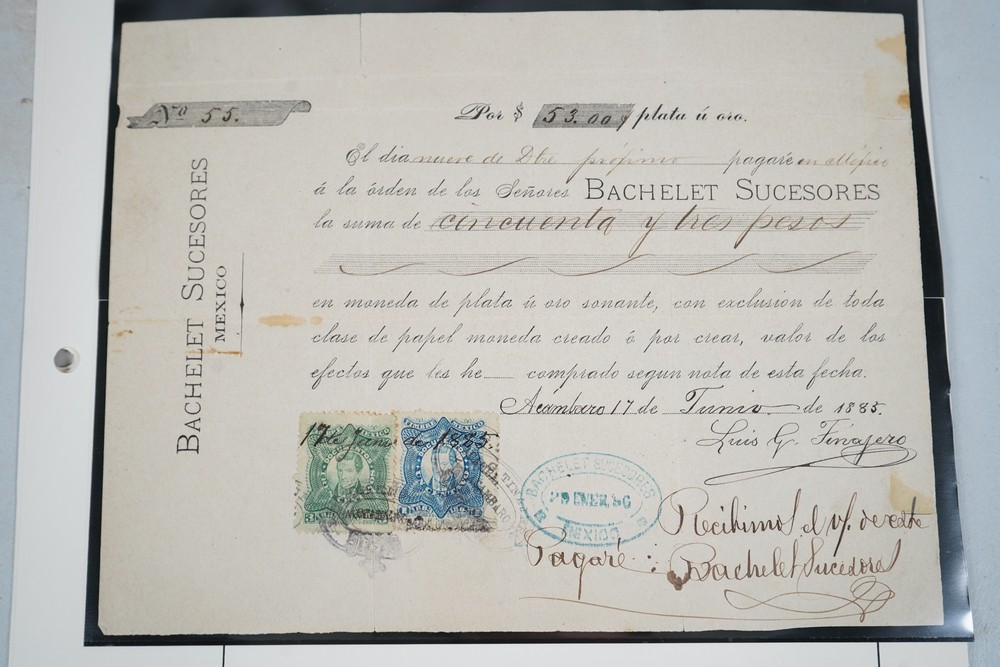 Nº 55.
Por $ 53.00 plata ú oro.
El dia nueve de Dbre próximo pagaré en México
á la órden de los Señores BACHELET SUCESORES
la suma de cincuenta y tres pesos
en moneda de plata ú oro sonante, con exclusion de toda
clase de papel moneda creado ó por crear, valor de los
efectos que les he comprado segun nota de esta fecha.
Acámbaro 17 de Junio de 1885.
Luis G. Tinajero
BACHELET SUCESORES
MEXICO
17 de Junio de 1885.
MEXICO
TIMBRE MEXICO
BACHELET SUCESORES
25 ENER. 86
MEXICO
Recibimos el vr. de este
Pagaré:
Bachelet Sucesores